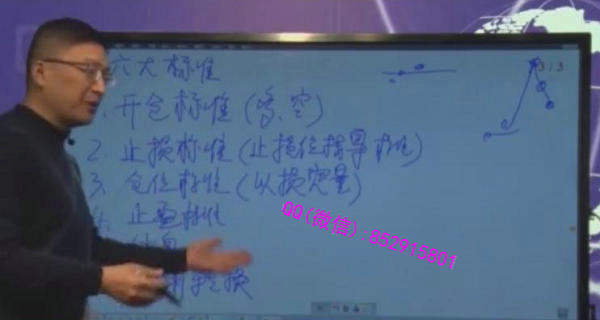 六大标准
1. 开仓标准(多、空)
2. 止损标准(止损位指导标准)
3. 仓位标准(以损定量)
4. 止盈标准
QQ(微信):952915801
313